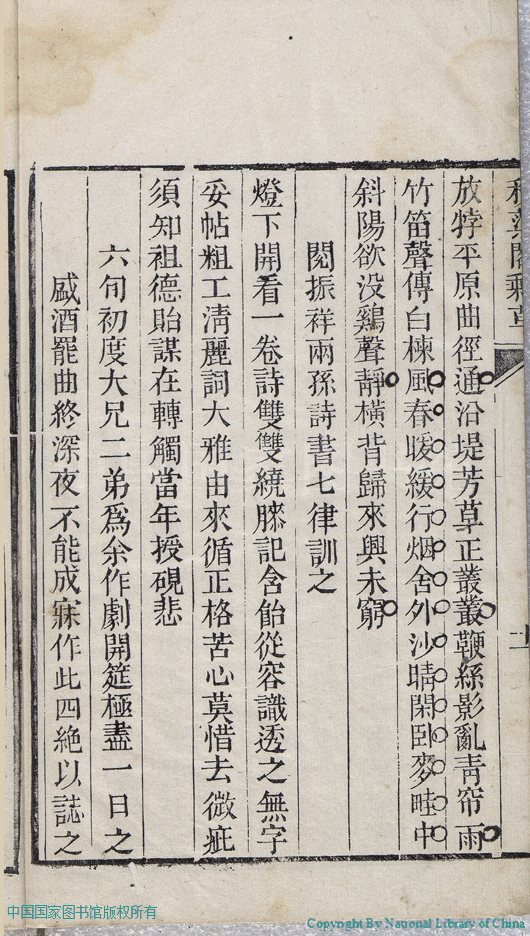 放牸平原曲徑通沿堤芳草正叢叢鞭絲影亂青帘雨
竹笛聲傳白楝風春暖緩行烟舍外沙晴閑臥麥畦中
斜陽欲没鷄聲靜橫背歸來興未窮
閱振祥兩孫詩書七律訓之
燈下開看一卷詩雙雙繞膝記含飴從容識透之無字
妥帖粗工淸麗詞大雅由來循正格苦心莫惜去微疵
須知祖德貽謀在轉觸當年授硯悲
六旬初度大兄二弟爲余作劇開筵極盡一日之
戚酒罷曲終深夜不能成寐作此四絶以誌之
中国国家图书馆版权所有
Copyright By National Library of China